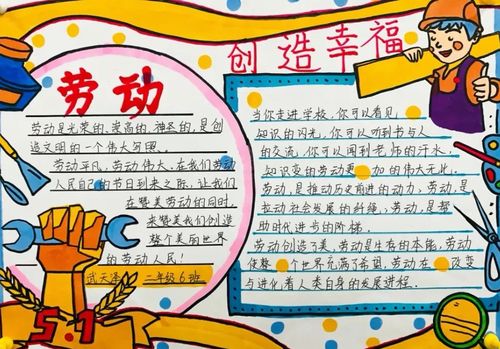 劳动
创造幸福
劳动是光荣的、崇高的、神圣的,是创
造文明的一个伟大写照。
劳动平凡,劳动伟大,在我们劳动
人民自己的节日到来之际,让我们
在赞美劳动的同时,
来赞美我们创造
整个美丽世界
的劳动人民!
武天泽 二年级6班
5.1
当你走进学校,你可以看见
知识的闪光,你可以听到书与人
的交流,你可以闻到老师的汗水,
知识变的劳动更加的伟大无比。
劳动,是推动历史前进的动力,劳动,是
拉动社会发展的纤绳,劳动,是帮
助时代进步的阶梯。
劳动创造了美,劳动是生存的本能,劳动
使整个世界充满了希望,劳动在改变
与进化着人类自身的发展进程。